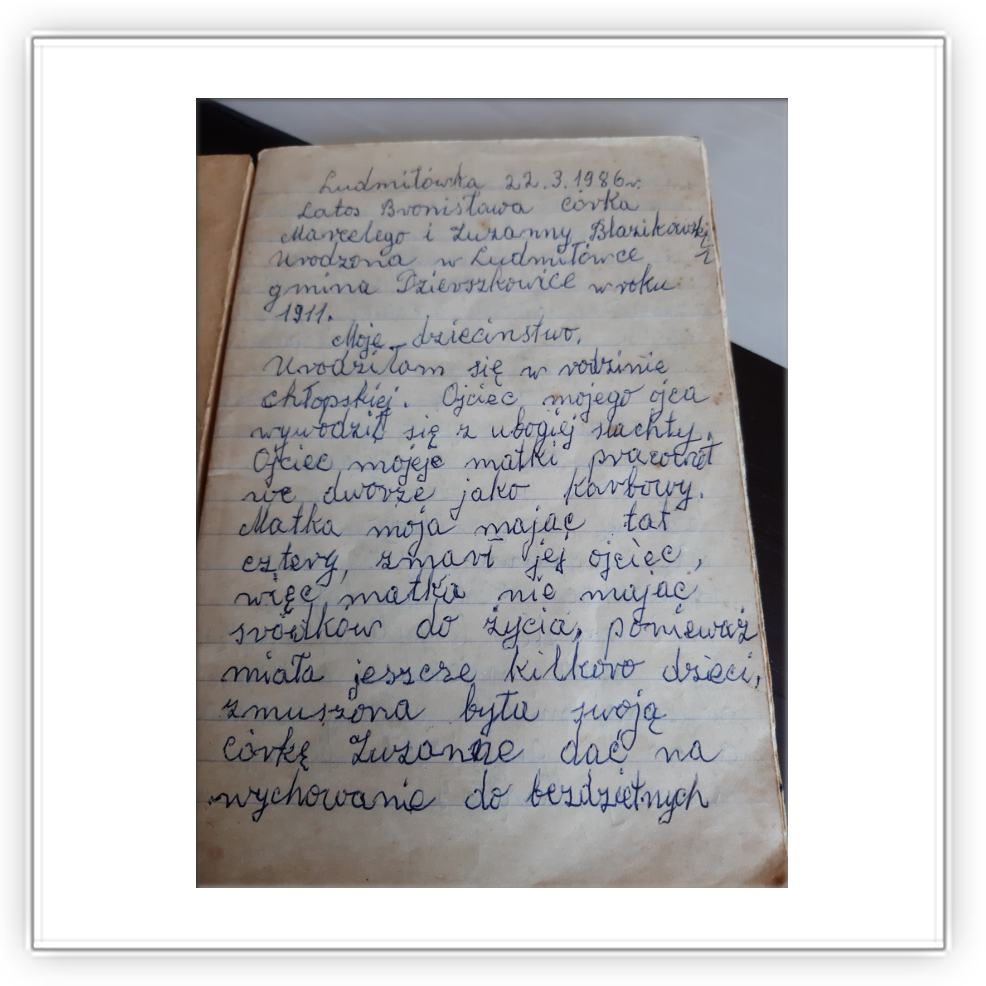 Ludmiłówka 22.3.1986r.
Latos Bronisława córka
Marcelego i Zuzanny Błazików
Urodzona w Ludmiłówce
gmina Dzierszkowice w roku
1911.
Moje dziecinstwo.
Urodziłam się w rodzinie
chłopskiej. Ojciec mojego ojca
wywodził się z ubogiej slachty.
Ojciec mojej matki pracował
we dworze jako karbowy.
Matka moja mając lat
cztery, zmarł jej ojciec,
więc matka nie mając
sródków do życia, ponieważ
miała jeszcze kilkoro dzieci,
zmuszona była swoją
córkę Zuzanne dać na
wychowanie do bezdzietnych